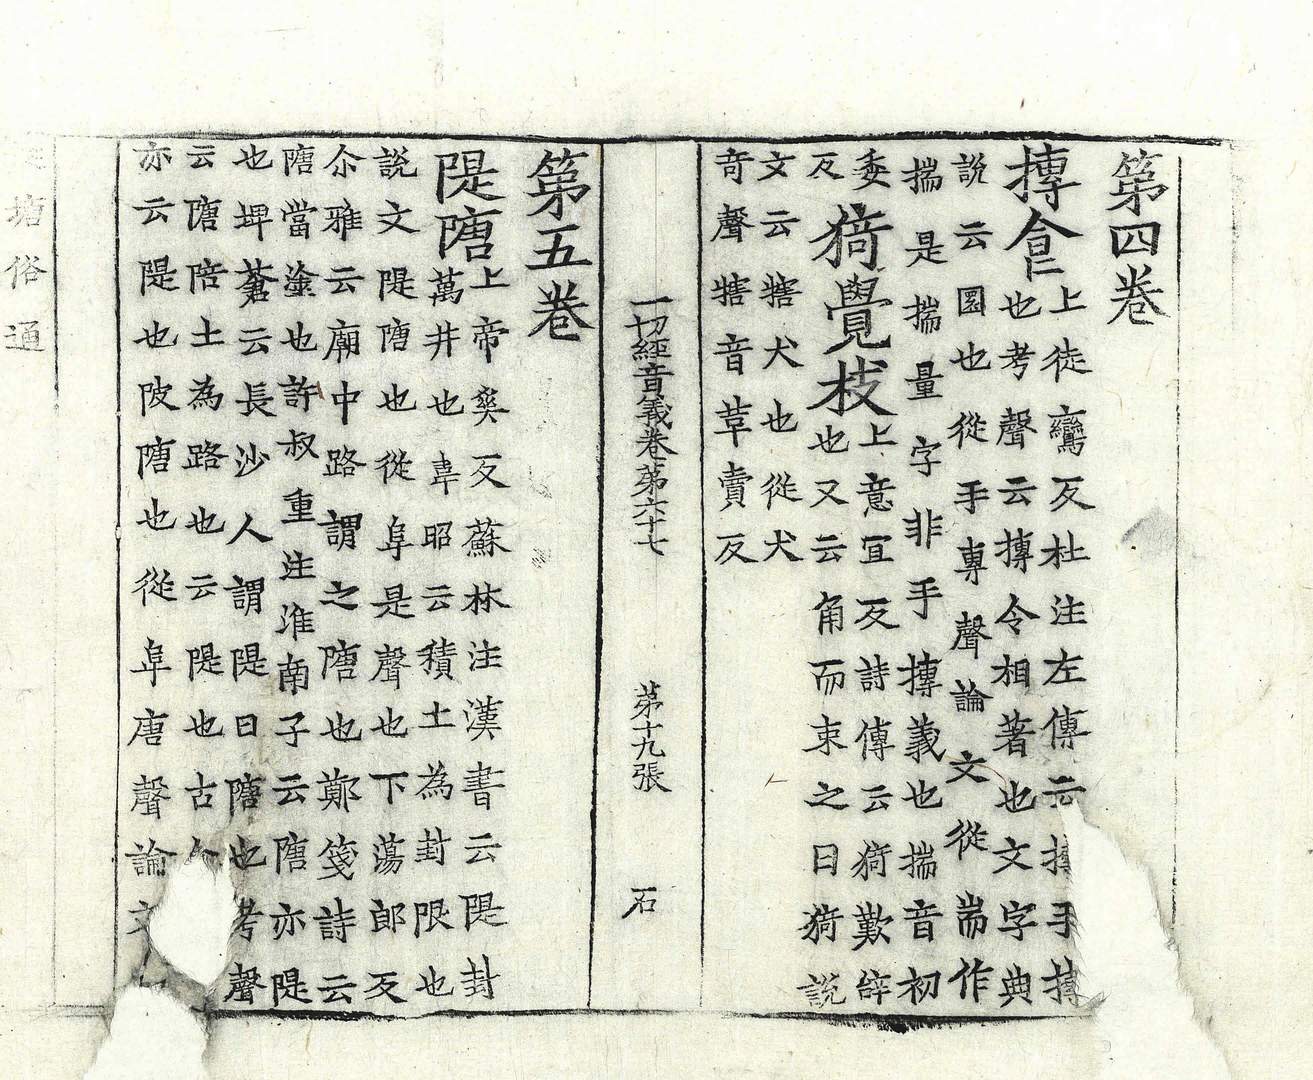 第四卷
摶食 上徒鸞反杜注左傳云摶手摶
也考聲云摶令相著也文字典
說云圜也從手專聲論文從耑作
揣是揣量字非手摶義也揣音初
委
反 猗覺枝 上意宜反詩傳云猗歎辝
也又云角而束之曰猗說
文云㹇犬也從犬
奇聲㹇音草賣反
一切經音義卷第六十七 第十九張 石
第五卷
隄隚 上帝奚反蘇林注漢書云隄封
萬井也韋昭云積土為封限也
說文隄隚也從阜是聲也下蕩郎反
尒雅云廟中路謂之隚也鄭箋詩云
隚當塗也許叔重注淮南子云隚亦隄
也埤蒼云長沙人謂隄曰隚也考聲
云隚陪土為路也云隄也古
亦云隄也陂隚也從阜唐聲論文
塘俗通